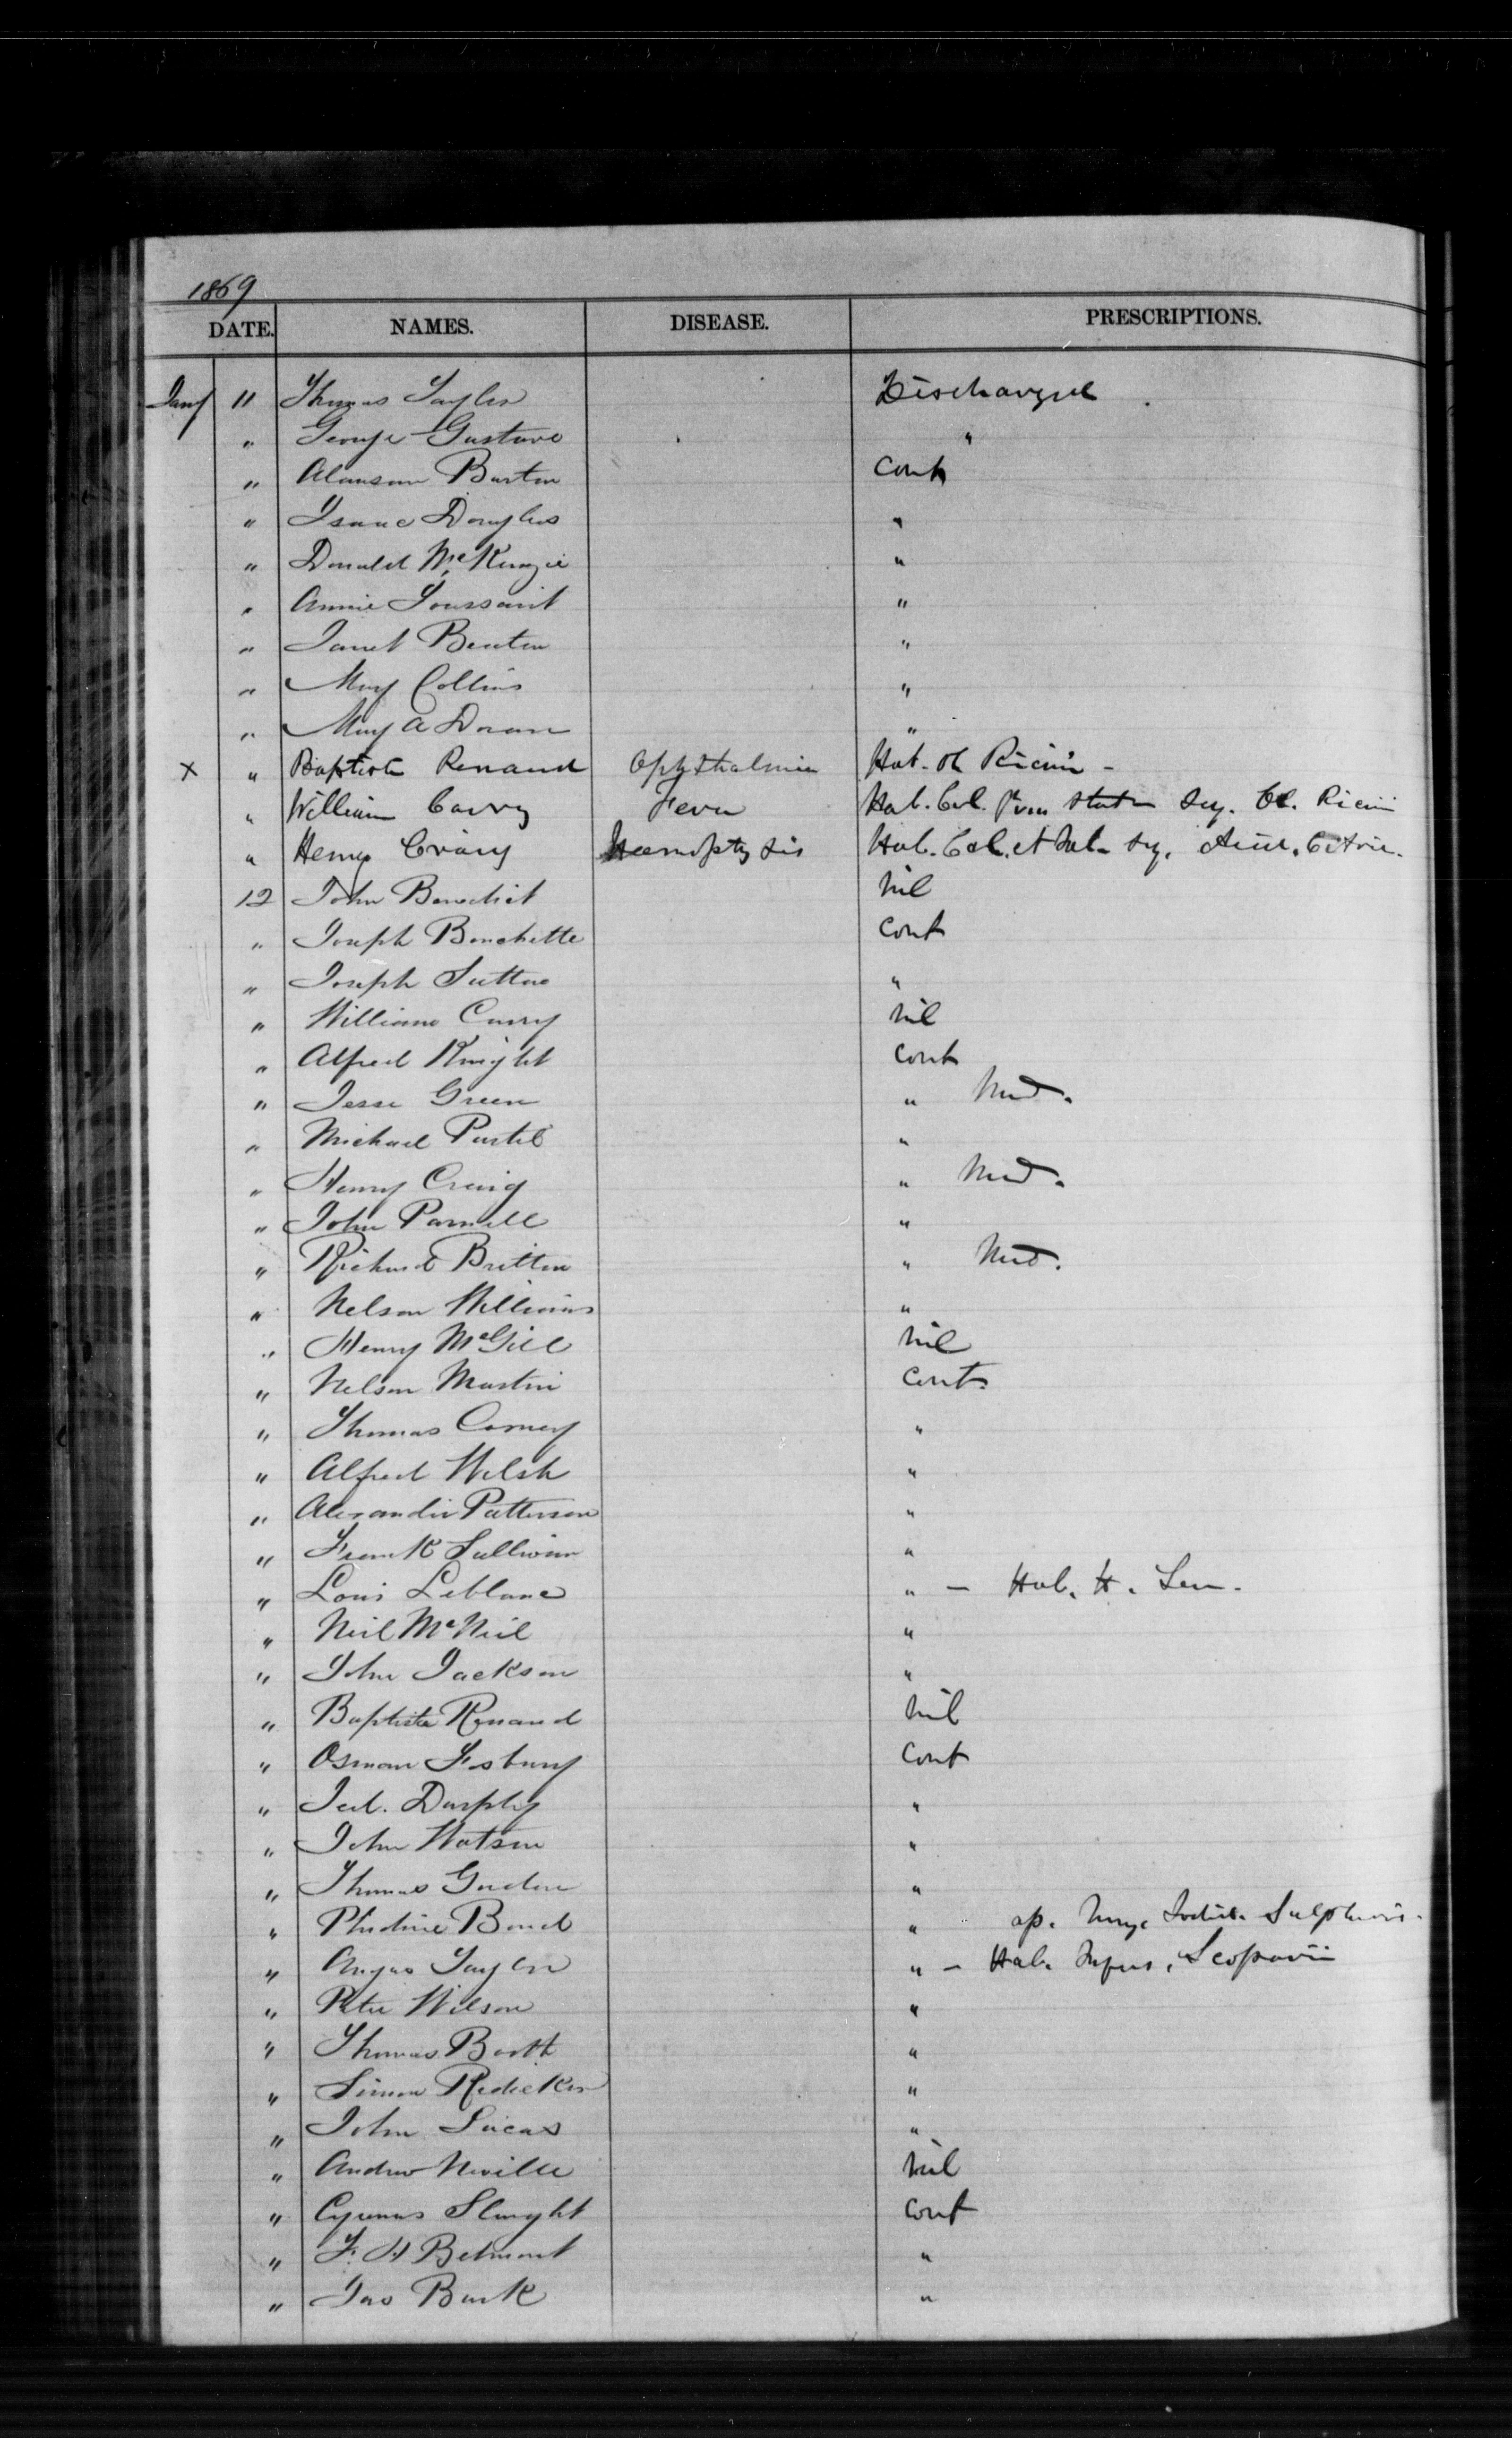 1869
DATE. NAMES. DISEASE. PRESCRIPTIONS.
Jany 11 Thomas Taylor Discharged
" George Gustave "
" Alanson Burton cont
" Isaac Douglas "
" Donald McKenzie "
" Annie Toussaint "
" Janet Benton "
" Mary Collins "
" Mary A Doran "
x " Baptiste Renaud Ophthalmia Hab. Ol Ricini -
" William Carry Fever Hab. Cal. statim Seq. Ol. Ricini
" Henry Craig Haemoptysis Hab. Cal. et Jal. Seq. Acid. Citric.
12 John Benedict nil
" Joseph Bouchette cont
" Joseph Sutton "
" William Curry nil
" Alfred Knight cont
" Jesse Green " Med.
" Michael "
" Henry Craig " Med.
" John Parnell "
" Richard Britton " Med.
" Nelson Williams "
" Henry McGill nil
" Nelson Martin cont.
" Thomas "
" Alfred Welsh "
" Alexander Patterson "
" Frank Sullivan "
" Louis Leblanc " - Hab. H. Sen.
" Neil McNeil "
" John Jackson "
" Baptiste Renaud nil
" Osman cont
" Jed. "
" John Watson "
" Thomas "
" Bond " ap. Ung. Iodid. Sulphuris.
" Angus Taylor " - Hab. Infus. Scoparii
" Peter Wilson "
" Thomas Booth "
" Simon "
" John Lucas "
" Andrew Neville nil
" Cyrenus Slaught cont
" F. H Belmont "
" Jas Burk "